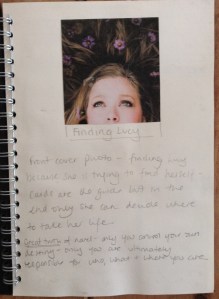 Finding Lucy
Front cover photo - finding Lucy
because she is trying to find herself -
Cards are the guide but in the
end only she can decide where
to take her life.
of novel - only you control your own
destiny - only you are ultimately
responsible for who, what & where you are.